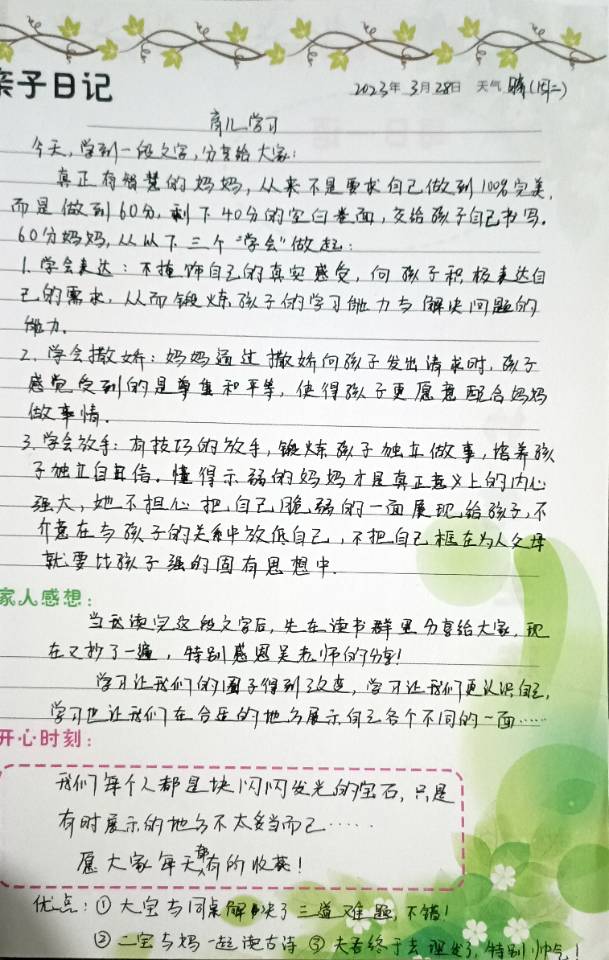 亲子日记
2023年 3月28日 天气 晴(周二)
育儿学习
今天，学到一段文字，分享给大家：
真正有智慧的妈妈，从来不是要求自己做到100%完美，
而是做到60分，剩下40分的空白卷面，交给孩子自己书写。
60分妈妈，从以下三个“学会”做起：
1.学会表达：不掩饰自己的真实感受，向孩子积极表达自
己的需求，从而锻炼孩子的学习能力与解决问题的
能力。
2.学会撒娇：妈妈通过撒娇向孩子发出请求时，孩子
感觉受到的是尊重和平等，使得孩子更愿意配合妈妈
做事情。
3.学会放手：有技巧的放手，锻炼孩子独立做事，培养孩
子独立自信。懂得示弱的妈妈才是真正意义上的内心
强大，她不担心把自己脆弱的一面展现给孩子，不
介意在与孩子的关系中放低自己，不把自己框在为人父母
就要比孩子强的固有思想中。
家人感想：
当我读完这段文字后，先在读书群里分享给大家，现
在又抄了一遍，特别感恩吴老师的分享！
学习让我们的圈子得到改变，学习让我们更认识自己，
学习也让我们在合适的地方展示自己各个不同的一面……
开心时刻：
我们每个人都是块闪闪发光的宝石，只是
有时展示的地方不太妥当而已……
愿大家每天都有的收获！
优点：①大宝与同桌解决了三道难题，不错！
②二宝与妈一起读古诗 ③夫君终于去理发了，特别帅气！